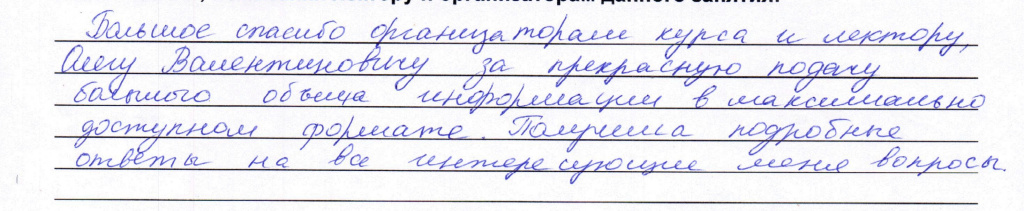 лектору и организаторам данного занятия.
Большое спасибо организаторам курса и лектору,
Олегу Валентиновичу за прекрасную подачу
большого объема информации в максимально
доступном формате. Получила подробные
ответы на все интересующие меня вопросы.